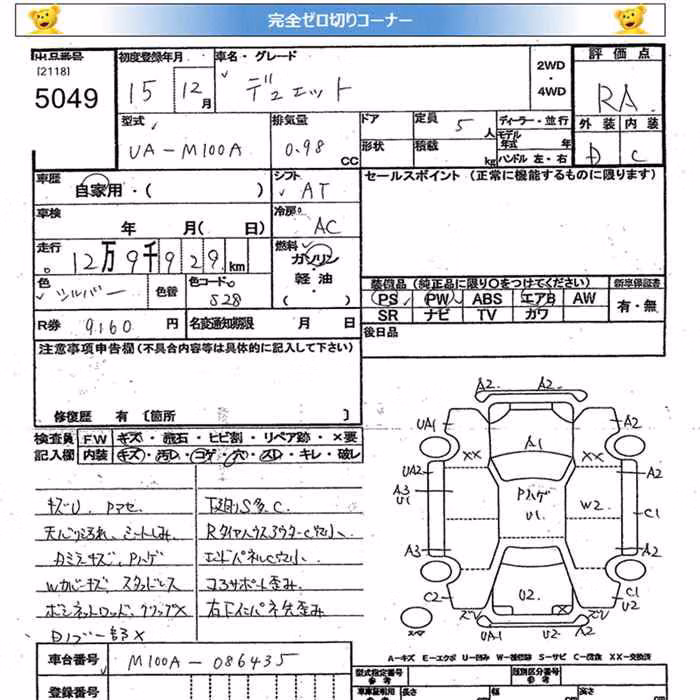 完全ゼロ切りコーナー
出品番号 初度登録年月 車名・グレード 2WD・4WD 評価点
[2118]
5049 15 12月 デュエット RA
型式 排気量 ドア 定員 5人 ディーラー・並行 外装 内装
モデル年式 年
UA-M100A 0.98 CC 形状 積載 kg ハンドル 左・右 D C
車歴 自家用・( ) シフト AT セールスポイント (正常に機能するものに限ります)
車検 年 月( 日) 冷房 AC
走行 12万9千929km 燃料 ガソリン・軽油・( )
色 シルバー 色替 色コード S28 装備品 (純正品に限り○をつけてください) 新車保証書
PS PW ABS エアB AW 有・無
R券 9160円 名変通知期限 月 日 SR ナビ TV カワ
注意事項申告欄 (不具合内容等は具体的に記入して下さい) 後日品
修復歴 有 〔箇所 〕
検査員記入欄 FW キズ・飛石・ヒビ割・リペア跡・×要
内装 キズ・汚レ・コゲ・穴・スレ・キレ・破レ
キズU、Pマセ 下廻りS多C
Rタイヤハウスアウターc穴小
カミラキズ、Pハゲ エンドパネルC穴小
Wカバーキズ、スタッドレス コアサポート歪み
ボンネットロッド、クリップ×
A2 A2
UA1 A1 A2
XX XX
UA2 Pハゲ A2
A3 U1 U1 W2 C1
A3 A2
C2 U2 × C1 U2
ズリ ズリ
スペ UA1 U2 A2
A-キズ E-エクボ U-凹み W-補修跡 S-サビ C-腐食 XX-交換済
車台番号 M100A-086435 型式指定番号 参考 類別区分番号 参考
登録番号 車庫証明用 参考 長さ 幅 高さ